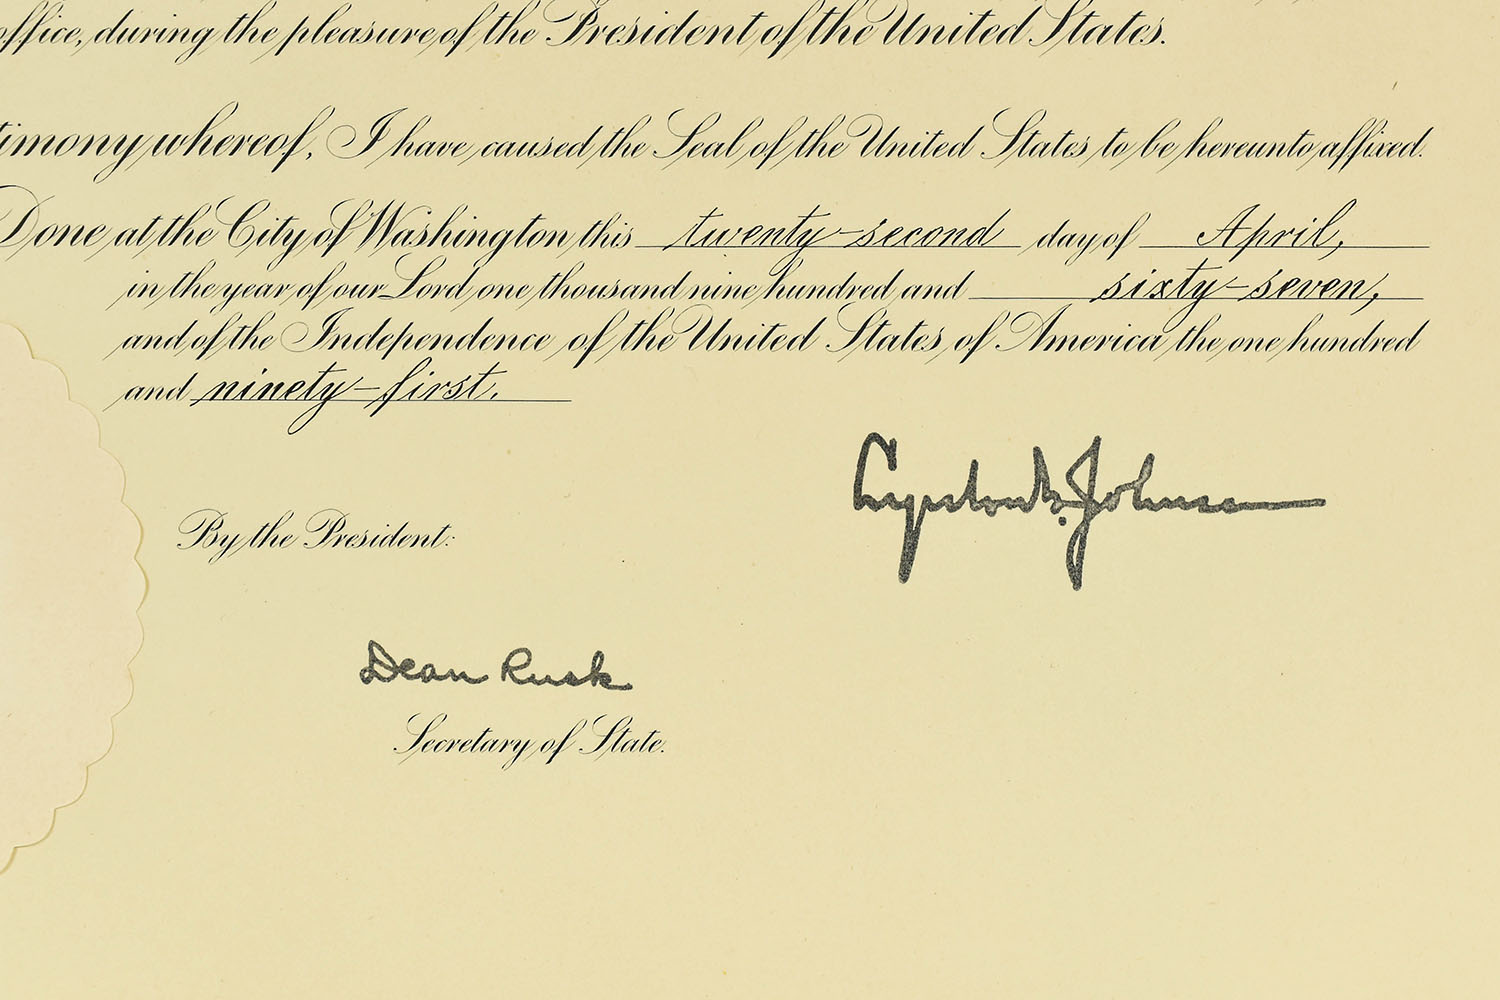 office, during the pleasure of the President of the United States.
timony whereof, I have caused the Seal of the United States to be hereunto affixed.
Done at the City of Washington this twenty-second day of April,
in the year of our Lord one thousand nine hundred and sixty-seven,
and of the Independence of the United States of America the one hundred
and ninety-first.
Lyndon B. Johnson
By the President:
Dean Rusk
Secretary of State.